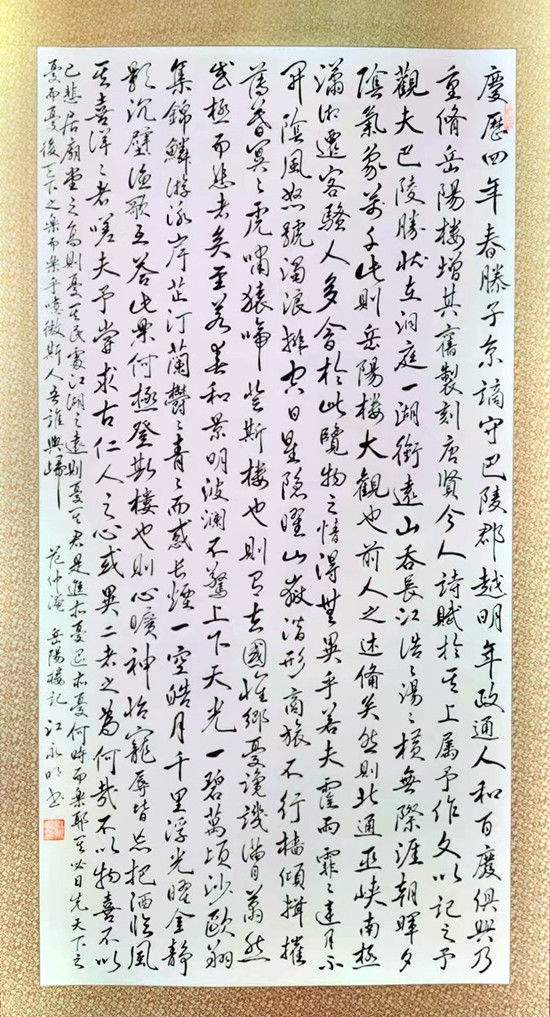 慶歷四年春滕子京謫守巴陵郡越明年政通人和百廢俱興乃
重脩岳陽樓增其舊製刻唐賢今人詩賦於其上属予作文以記之予
觀夫巴陵勝狀在洞庭一湖銜遠山吞長江浩々湯々橫無際涯朝暉夕
陰氣象萬千此則岳陽樓大觀也前人之述備矣然則北通巫峽南極
瀟湘遷客騷人多會於此覽物之情得無異乎若夫霪雨霏々連月不
開陰風怒號濁浪排空日星隱曜山嶽潛形商旅不行檣傾楫摧
薄暮冥々虎嘯猿啼登斯樓也則有去國懷鄉憂讒譏滿目蕭然
感極而悲者矣至若春和景明波瀾不驚上下天光一碧萬頃沙鷗翔
集錦鱗游泳岸芷汀蘭鬱々青々而惑長煙一空皓月千里浮光曜金靜
影沉壁漁歌互答此樂何極登斯樓也則心曠神怡寵辱皆忘把酒臨風
其喜洋々者嗟夫予嘗求古仁人之心或異二者之為何哉不以物喜不以
己悲居廟堂之高則憂其民處江湖之遠則憂其君是進亦憂退亦憂何時而樂耶其必曰先天下之
憂而憂後天下之樂而樂乎噫微斯人吾誰與歸 范仲淹 岳陽樓記 江永明書